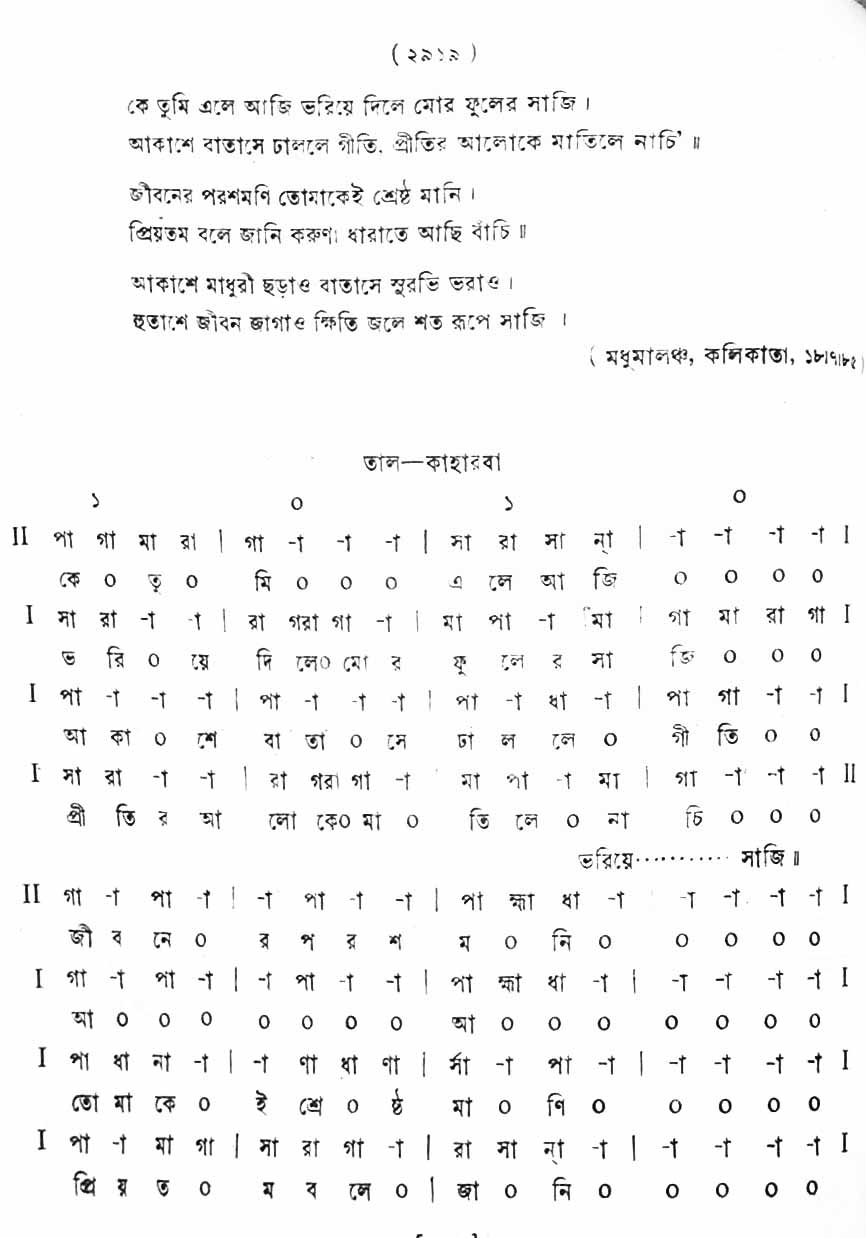 ( ২৯১৯ )
কে তুমি এলে আজি ভরিয়ে দিলে মোর ফুলের সাজি ।
আকাশে বাতাসে ঢাললে গীতি, প্রীতির আলোকে মাতিলে নাচি' ॥
জীবনের পরশমণি তোমাকেই শ্রেষ্ঠ মানি ।
প্রিয়তম বলে জানি করুণা ধারাতে আছি বাঁচি ॥
আকাশে মাধুরী ছড়াও বাতাসে সুরভি ভরাও ।
হুতাশে জীবন জাগাও ক্ষিতি জলে শত রূপে সাজি ।
( মধুমালঞ্চ, কলিকাতা, ১৮।৭।৮৫ )
তাল—কাহারবা
১ ০ ১ ০
II পা গা মা রা | গা -া -া -া | সা রা সা ন্া | -া -া -া -া I
কে ০ তু ০ মি ০ ০ ০ এ লে আ জি ০ ০ ০ ০
I সা রা -া -া | রা গরা গা -া | মা পা -া মা | গা মা রা গা I
ভ রি ০ য়ে দি লে০ মো র ফু লে র সা জি ০ ০ ০
I পা -া -া -া | পা -া -া -া | পা -া ধা -া | পা গা -া -া I
আ কা ০ শে বা তা ০ সে ঢা ল লে ০ গী তি ০ ০
I সা রা -া -া | রা গরা গা -া মা পা -া মা | গা -া -া -া II
প্রী তি র আ লো কে০ মা ০ তি লে ০ না চি ০ ০ ০
ভরিয়ে··········· সাজি ॥
II গা -া পা -া | -া পা -া -া | পা হ্মা ধা -া -া -া -া -া I
জী ব নে ০ র প র শ ম ০ নি ০ ০ ০ ০ ০
I গা -া পা -া | -া পা -া -া | পা হ্মা ধা -া | -া -া -া -া I
আ ০ ০ ০ ০ ০ ০ ০ আ ০ ০ ০ ০ ০ ০ ০
I পা ধা না -া | -া ণা ধা ণা | র্সা -া পা -া | -া -া -া -া I
তো মা কে ০ ই শ্রে ০ ষ্ঠ মা ০ ণি ০ ০ ০ ০ ০
I পা -া মা গা | সা রা গা -া | রা সা ন্া -া | -া -া -া -া I
প্রি য় ত ০ ম ব লে ০ | জা ০ নি ০ ০ ০ ০ ০